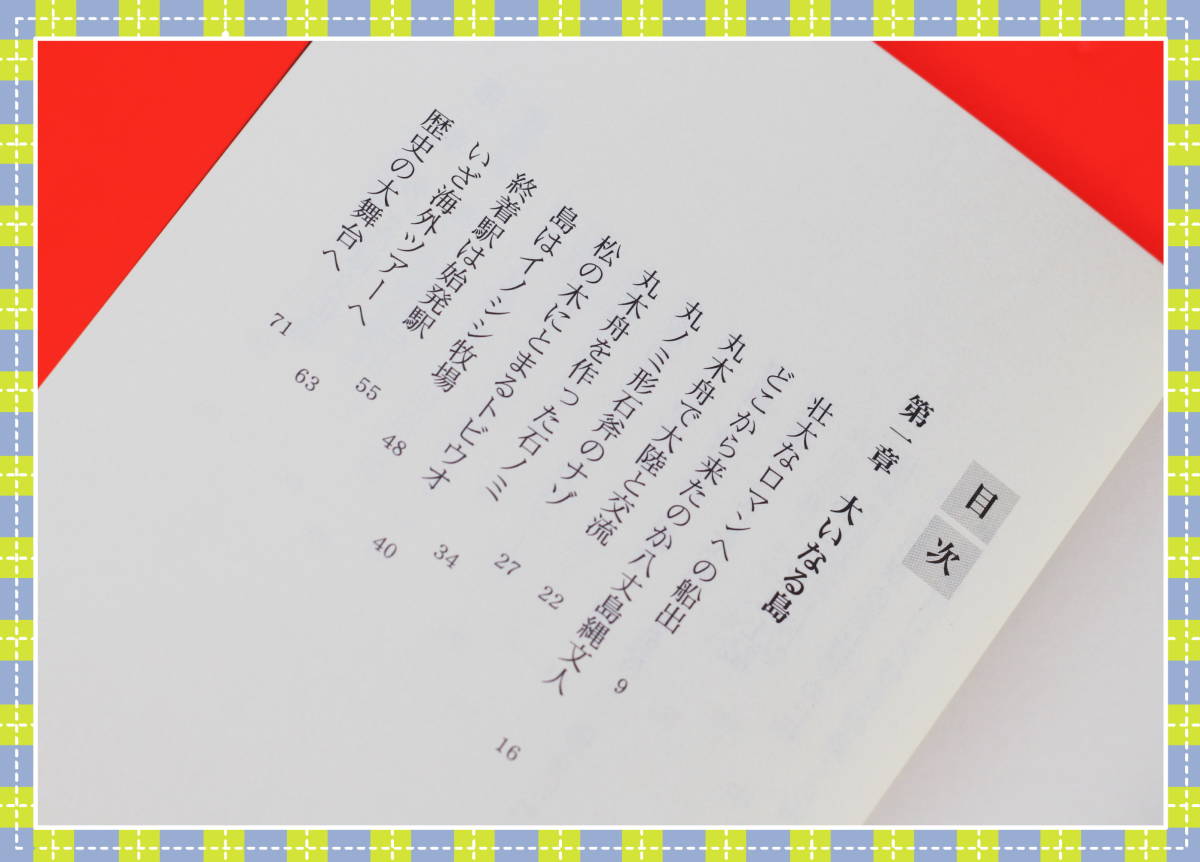 目次
第一章 大いなる島
壮大なロマンへの船出 9
どこから来たのか八丈島縄文人 16
丸木舟で大陸と交流 22
丸ノミ形石斧のナゾ 27
丸木舟を作った石ノミ 34
松の木にとまるトビウオ 40
島はイノシシ牧場 48
終着駅は始発駅 55
いざ海外ツアーへ 63
歴史の大舞台へ 71